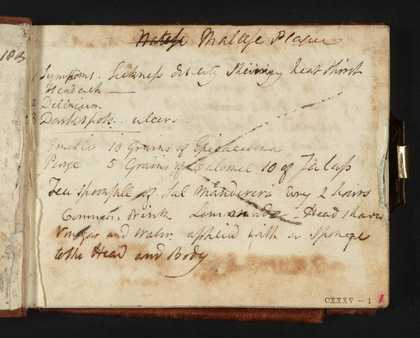 Maltese Plague
Symptoms. Sickness debility Shivering heat thirst
Headach
Delirium
Dark spots. ulcers
Emetic 10 Grains of Ipecacuana
Purge 5 Grains of Calomel 10 of Jalap
Tea spoonfull of Sal Mindereri every 2 hours
Common Drink Lemonade. Head shaved
Vinegar and Water applied with a sponge
to the Head and Body
CXXXV - 1